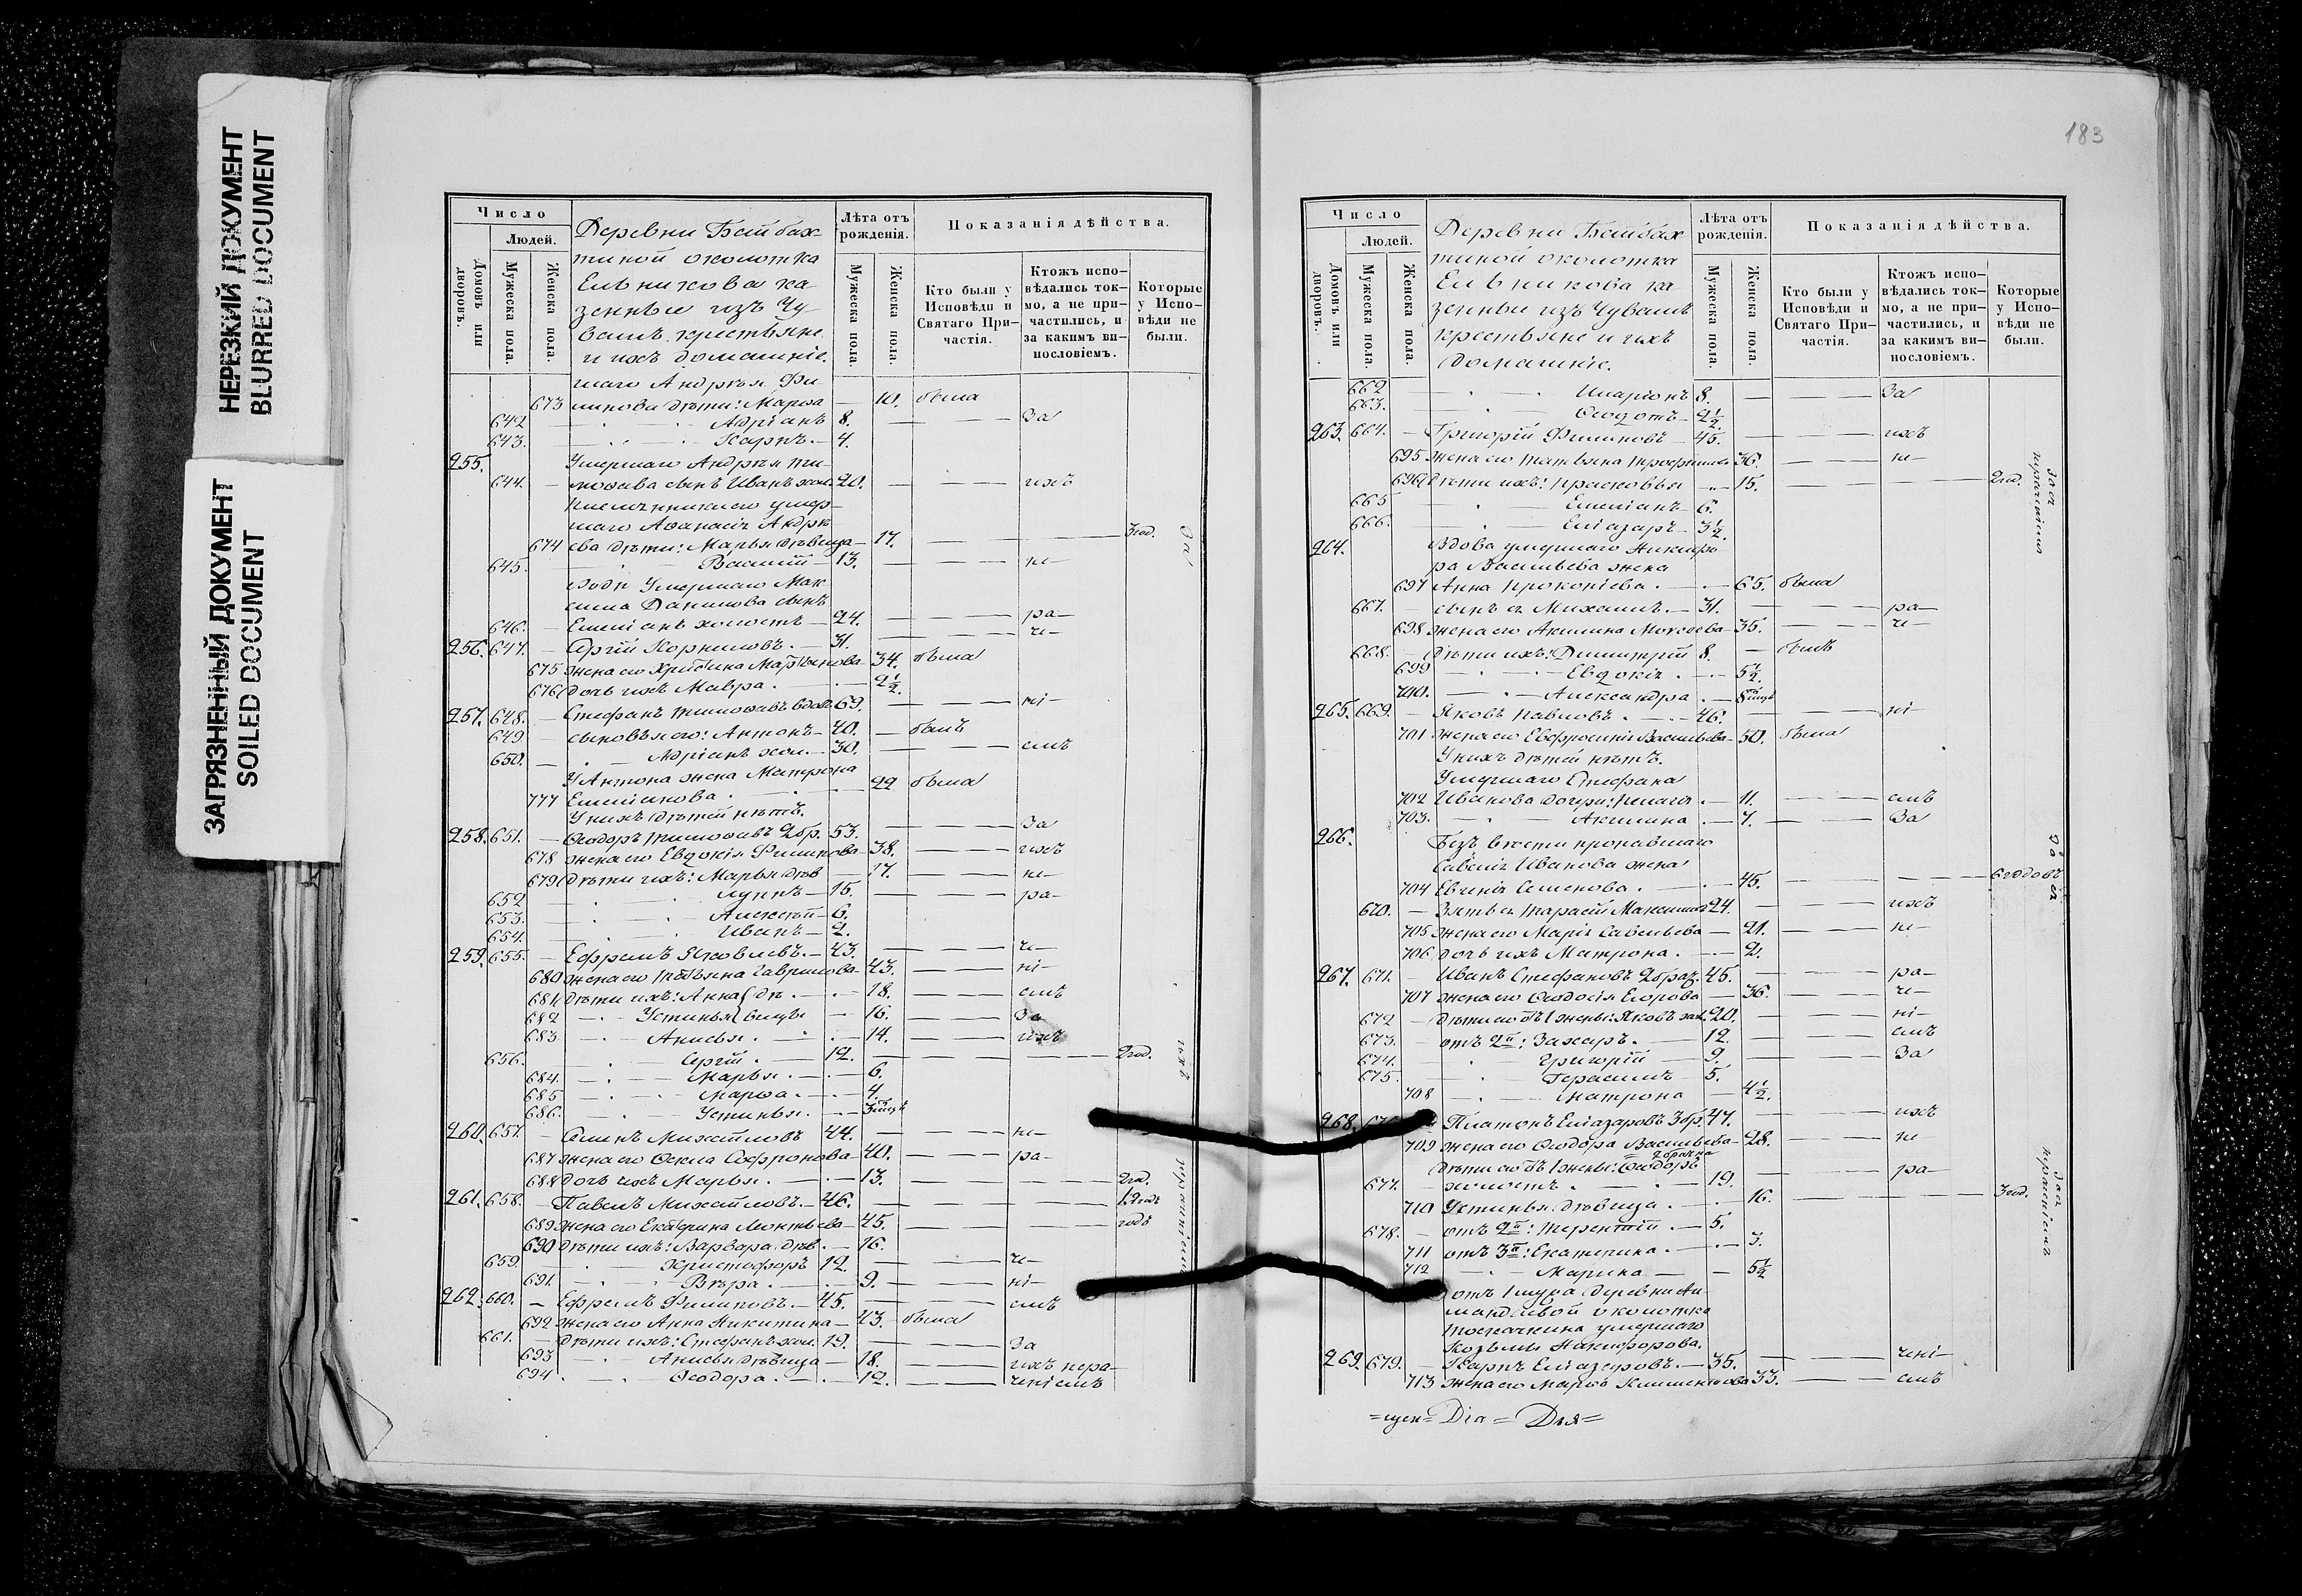 НЕРЕЗКИЙ ДОКУМЕНТ
BLURRED DOCUMENT
ЗАГРЯЗНЕННЫЙ ДОКУМЕНТ
SOILED DOCUMENT
Число
Людей.
Домовъ или дворовъ.
Мужеска пола.
Женска пола.
Деревни
околотка
крестьяне
и ихъ домашніе.
Лѣта отъ рожденія.
Мужеска пола.
Женска пола.
Показанія дѣйства.
Кто были у Исповѣди и Святаго При-частія.
Ктожъ испо-вѣдались ток-мо, а не при-частились, и за какимъ ви-нословіемъ.
Которые у Испо-вѣди не были.
673 дѣти: Марѳа — 10. была
642 Адріанъ 8. За
643. Карпъ 4.
255. Умершаго Андрея
644. сынъ Иванъ хол. 20. ихъ
умер-
шаго Аѳанасія Андре
674 ева дѣти: Марья дѣвица — 17. 3 год.
645. Василій — 13. не—
Умершаго Мак-
сима Данилова сынъ
646. Емеліанъ холостъ — 24. ра—
256. 647. Сергій Корниловъ — 31. че—
675 жена его Христина — 34. была
676 дочь ихъ Мавра. 2½.
257. 648. Стефанъ Тимоѳеевъ вдовъ 69. ні—
649 сыновья его: Антонъ — 40. — былъ
650. Адріанъ хол. — 30. емъ
У Антона жена Матрона
777 Емеліанова. 22 была
У нихъ дѣтей нѣтъ.
258. 651. Ѳеодоръ Тимоѳеевъ 2 бр. 53. За
678 жена его Евдокія Филипова — 38. ихъ
679 дѣти ихъ: Марья дѣв 17. не—
652 Луппъ — 15. ра—
653. Алексѣй — 6.
654. Иванъ — 2.
259. 655. Ефремъ Яковлевъ. — 43. че—
680 жена его Татьяна Гаврилова — 43. ні—
681 дѣти ихъ: Анна дѣ 18. емъ
682 Устинья вицы — 16. За
683. Анисья 14. ихъ
656. Сергій. 12. 2 год.
684. Марья. 6.
685 Марѳа. 4.
686. Устинья. 3
260. 657. Семенъ Михайловъ 44. не—
687 жена его Ѳекла Софронова — 40. ра—
688 дочь ихъ Марья. 13. 2 год.
261. 658. Павелъ Михайловъ. — 46.
689 жена его Екатерина Леонтьева — 45. годъ
690 дѣти ихъ: Варвара дѣв. — 16.
659. Христофоръ 12. че—
691. Вѣра. 9. ні—
262. 660. Ефремъ Филиповъ. — 45. емъ
692 жена его Анна Никитина — 43. была
661. дѣти ихъ: Стефанъ хол. 19. За
693 Анисья дѣвица — 18. ихъ нера—
694. Ѳеодора. 12. ченіемъ
За
ихъ
нераченіемъ
183
Число
Людей.
Домовъ или дворовъ.
Мужеска пола.
Женска пола.
Деревни
околотка
крестьяне и ихъ
домашніе.
Лѣта отъ рожденія.
Мужеска пола.
Женска пола.
Показанія дѣйства.
Кто были у Исповѣди и Святаго При-частія.
Ктожъ испо-вѣдались ток-мо, а не при-частились, и за какимъ ви-нословіемъ.
Которые у Испо-вѣди не были.
662 Иларіонъ 8. За
663. Ѳеодотъ 2½.
263. 664. Григорій Филиповъ — 45. ихъ
695 жена его Татьяна 36. не
696 дѣти ихъ: Прасковья 15. 2 год.
665 Емеліанъ 6.
666. Еліазаръ 3½.
264. Вдова умершаго Никифо
ра Васильева жена
697 Анна Прокопіева. 65. была
667. сынъ ея Михаилъ. — 31. ра—
698 жена его Акилина 35. че—
668. дѣти ихъ: Димитрій 8. — былъ
699 Евдокія 5½.
700. Александра. 8
265. 669. Яковъ Павловъ. 46. ні—
701 жена его Евфросинія Васильева — 50. была
У нихъ дѣтей нѣтъ.
Умершаго Стефана
702 Иванова дочери: Пелагія 11. емъ
703. Акилина. 7. За
266. Безъ вѣсти пропавшаго
Савелія Иванова жена
704 Евгенія Семенова. 45. 6 годовъ
670. Зять ея Тарасій Максимовъ 24. ихъ
705 жена его Марія Савельева — 21. не—
706 дочь ихъ Матрона. 2.
267. 671. Иванъ Стефановъ 2 брач. 45. ра—
707 жена его Ѳеодосія Егорова — 36. че—
672 дѣти его отъ 1 жены: Яковъ хол. 20. ні—
673. отъ 2й: Захаръ. 12. емъ
674. Григорій 9. За
675. Герасимъ 5.
708 Матрона 4½.
268. Платонъ Еліазаровъ 3 бр. 47. ихъ
709 жена его Ѳеодора Васильева — 28. не
2 брачна
дѣти его отъ 1 жены: Ѳеодоръ
677. холостъ. 19. ра—
710 Устинья дѣвица. 16. 3 год.
678. отъ 2й: Терентій. 5.
711 отъ 3й: Екатерина. 3.
712 Марина — 5½
отъ 1 мужа деревни
околотка
умершаго
Козьмы Никифорова.
269. 679. Карпъ Еліазаровъ. — 35. чені—
713 жена его Марѳа Климентова 33. емъ
=щен= Dia = Дья=